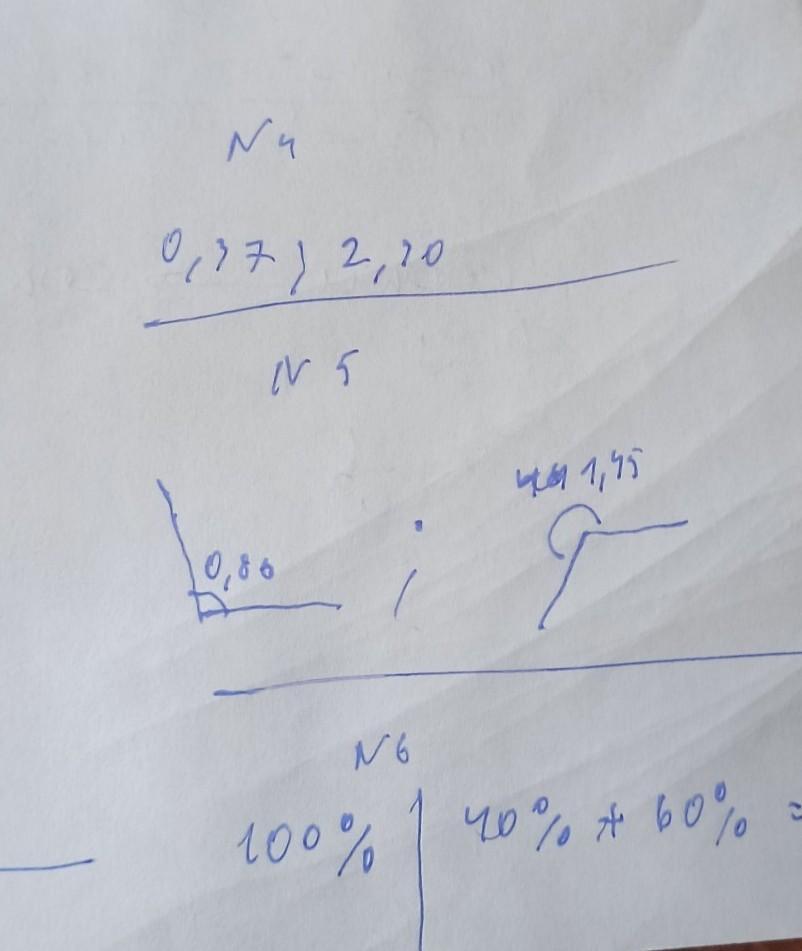 N 4
0,37; 2,30
N 5
0,86 ; 1,45
N 6
100% | 40% + 60% =